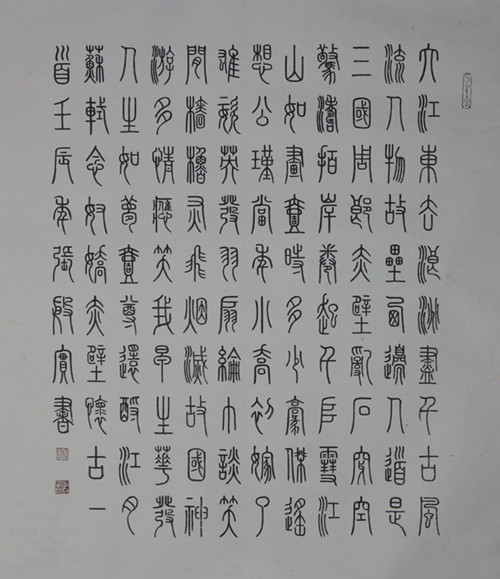 大江東去浪淘盡千古風
流人物故壘西邊人道是
三國周郎赤壁亂石穿空
驚濤拍岸卷起千堆雪江
山如畫壹時多少豪傑遙
想公瑾當年小喬初嫁了
雄姿英發羽扇綸巾談笑
間檣櫓灰飛烟滅故國神
游多情應笑我早生華發
人生如夢壹尊還酹江月
蘇軾念奴嬌赤壁懷古一
首壬辰年張殷實書